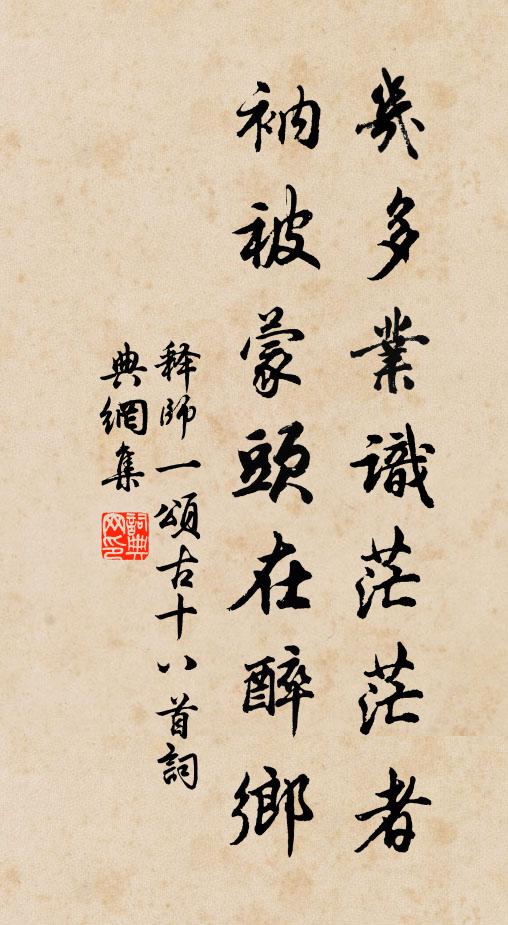 幾多業識茫茫者
衲被蒙頭在醉鄉
释師一頌古十八首詞
典網集
詞典
网印